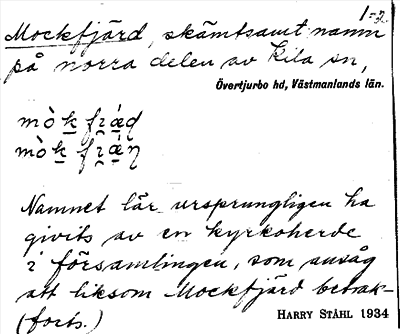 1-2.
Mockfjärd, skämtsamt namn
på norra delen av Kila sn,
Övertjurbo hd, Västmanlands län.
Namnet lär ursprungligen ha
givits av en kyrkoherde
i församlingen, som ansåg
att liksom Mockfjärd betrak-
(forts.)
HARRY STÅHL 1934